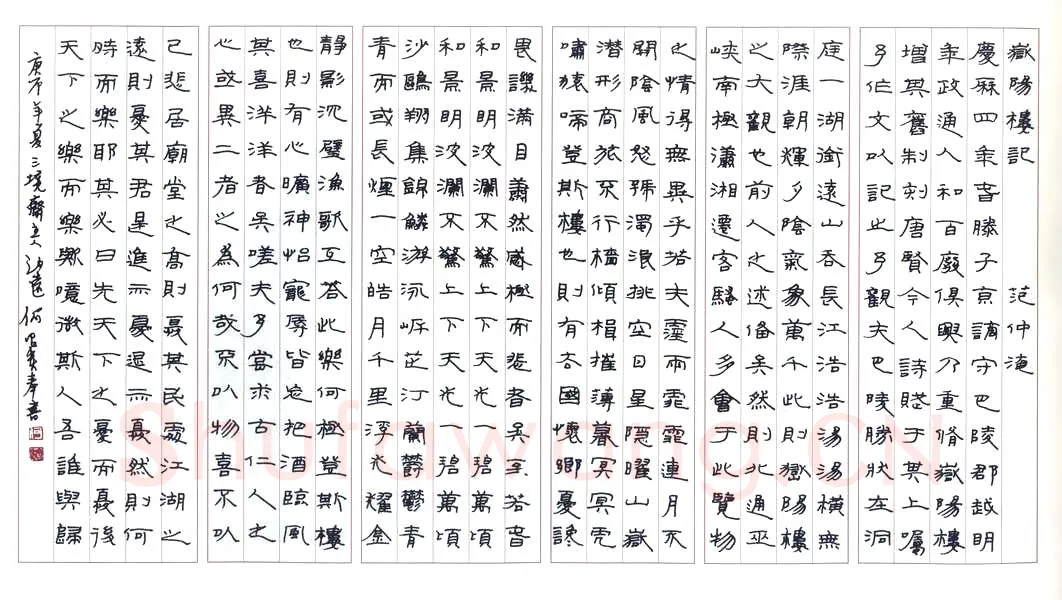 嶽陽樓記 范仲淹
慶厤四年春滕子京謫守巴陵郡越明
年政通人和百廢俱興乃重脩嶽陽樓
增其舊制刻唐賢今人詩賦于其上囑
予作文以記之予觀夫巴陵勝狀在洞
庭一湖銜遠山吞長江浩浩湯湯橫無
際涯朝輝夕陰氣象萬千此則嶽陽樓
之大觀也前人之述備矣然則北通巫
峽南極瀟湘遷客騷人多會于此覽物
之情得無異乎若夫霪雨霏霏連月不
開陰風怒號濁浪排空日星隱曜山嶽
潛形商旅不行檣傾楫摧薄暮冥冥虎
嘯猿啼登斯樓也則有去國懷鄉憂讒
畏譏滿目蕭然感極而悲者矣至若春
和景明波瀾不驚上下天光一碧萬頃
和景明波瀾不驚上下天光一碧萬頃
沙鷗翔集錦鱗游泳岸芷汀蘭鬱鬱青
青而或長煙一空皓月千里浮光耀金
靜影沉璧漁歌互答此樂何極登斯樓
也則有心曠神怡寵辱皆忘把酒臨風
其喜洋洋者矣嗟夫予嘗求古仁人之
心或異二者之為何哉不以物喜不以
己悲居廟堂之高則憂其民處江湖之
遠則憂其君是進亦憂退亦憂然則何
時而樂耶其必曰先天下之憂而憂後
天下之樂而樂歟噫微斯人吾誰與歸
庚子年夏三境齋主 遠何 奉書
Shufawang.CN